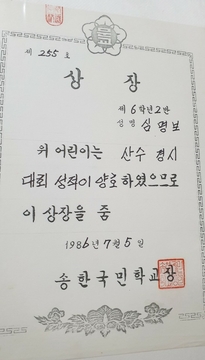 제 255 호
상 장
제 6학년 2반
성명 심명보
위 어린이는 산수 경시
대회 성적이 양호하였으므로
이 상장을 줌
1986년 7월 5일
송한국민학교장